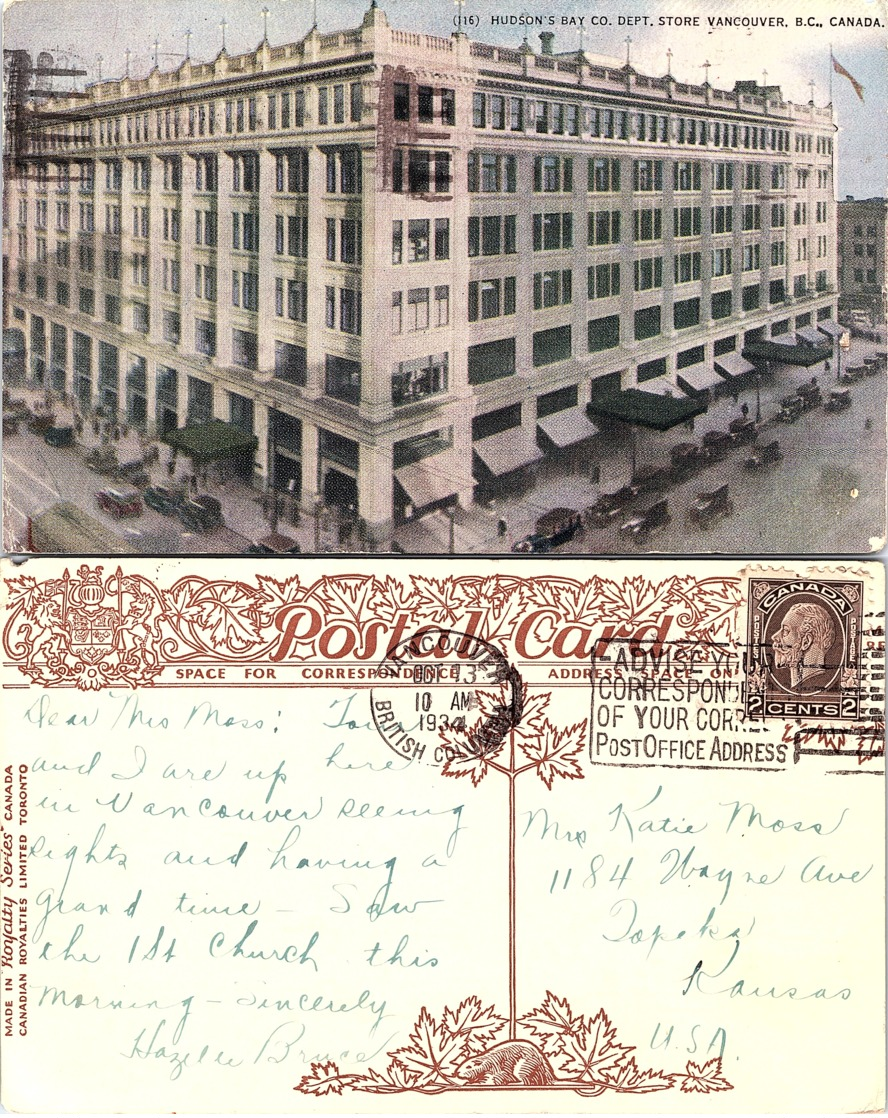 (116) HUDSON'S BAY CO. DEPT. STORE VANCOUVER, B.C., CANADA.
Postal Card
SPACE FOR CORRESPONDENCE
ADDRESS SPACE ON
CANADA
POSTES
POSTAGE
2 CENTS 2
VANCOUVER
OCT 13
10 AM
1934
BRITISH COLUMBIA
ADVISE YOUR
CORRESPONDEN
OF YOUR CORRE
POST OFFICE ADDRESS
Dear Mrs Moss:
and I are up here
in Vancouver seeing
sights and having a
grand time – Saw
the 1st Church this
morning – Sincerely
Bruce
Mrs Katie Moss
1184 Wayne Ave
Topeka
Kansas
U.S.A.
MADE IN "Royalty Series" CANADA
CANADIAN ROYALTIES LIMITED TORONTO